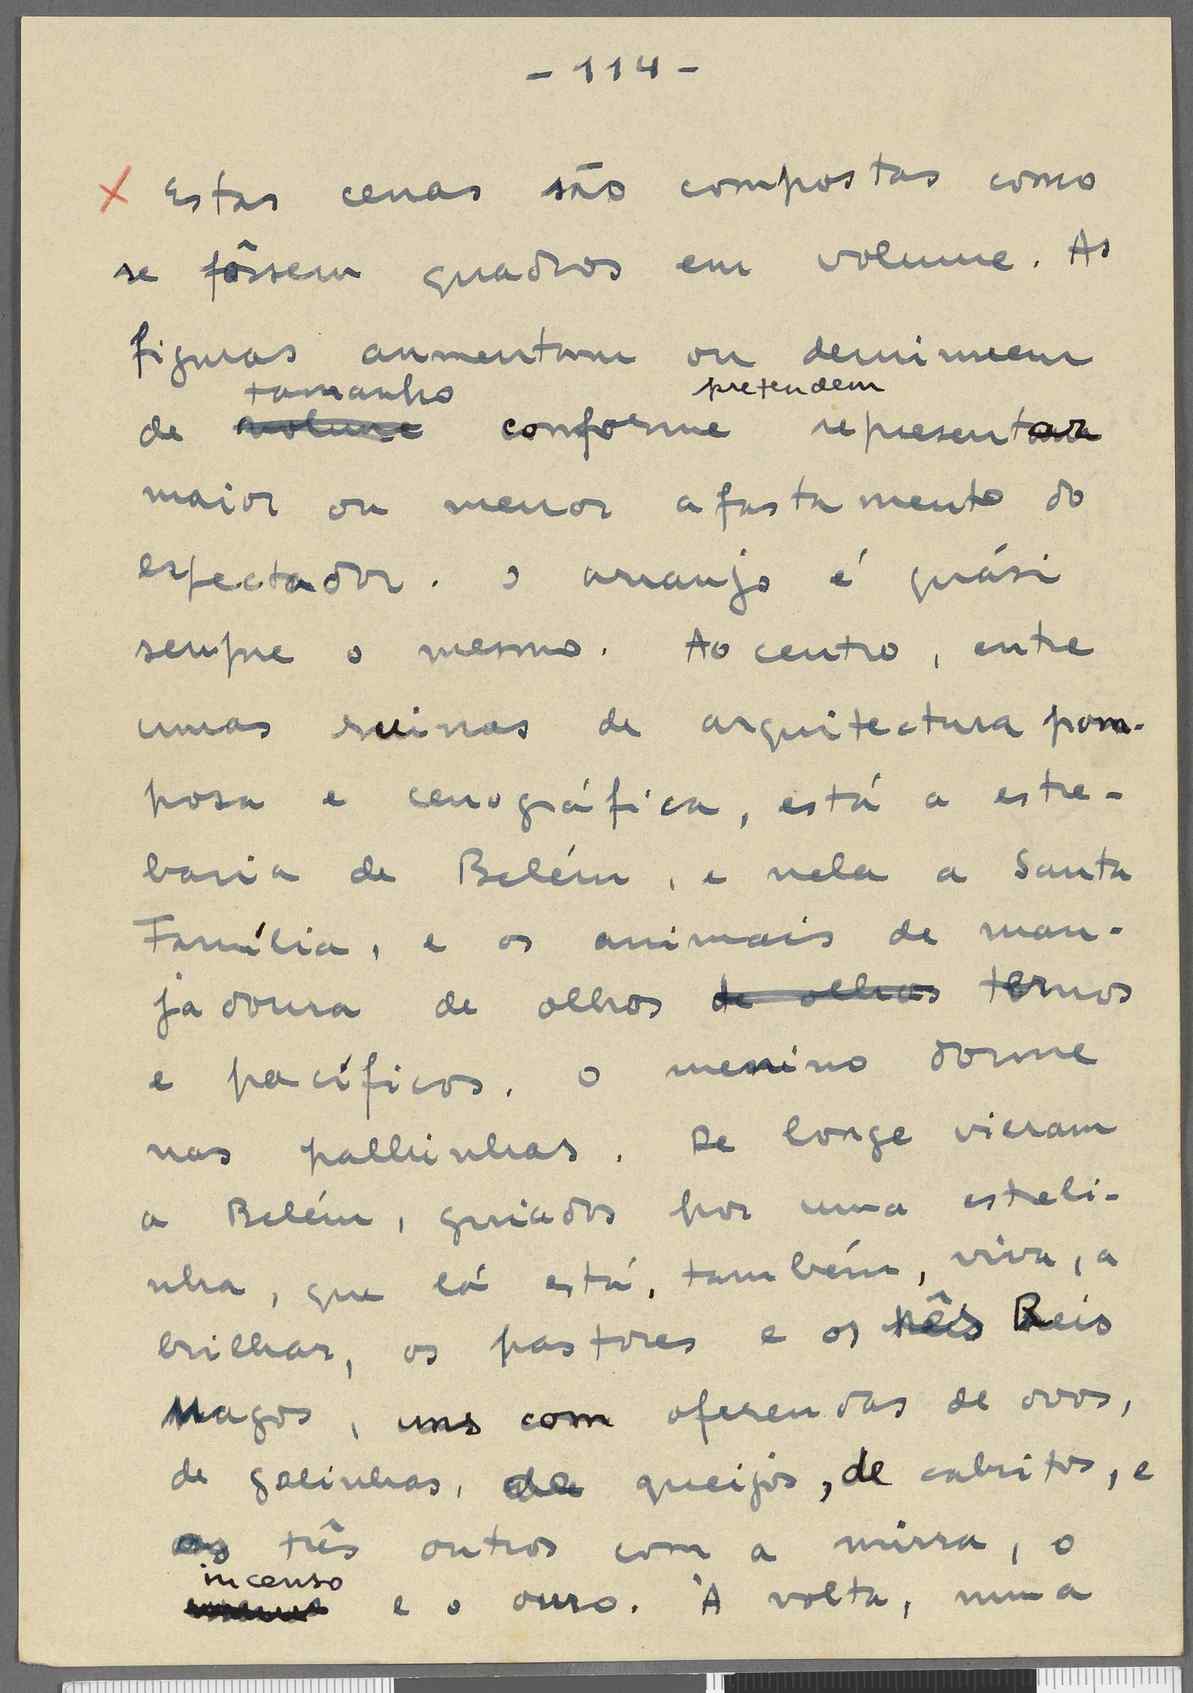 - 114 -
x Estas cenas são compostas como
se fôssem quadros em volume. As
figuras aumentam ou deminuem
tamanho pretendem
de volume conforme representar
maior ou menor afastamento do
espectador. O arranjo é quási
sempre o mesmo. Ao centro, entre
umas ruinas de arquitectura pom-
posa e cenográfica, está a estre-
baria de Belém, e nela a Santa
Família, e os animais de man-
jadoura de olhos de olhos ternos
e pacíficos. O menino dorme
nas palhinhas. De longe vieram
a Belém, guiados por uma estreli-
nha, que lá está, também, viva, a
brilhar, os pastores e os três Reis
Magos, uns com oferendas de ovos,
de galinhas, de queijos, de cabritos, e
os três outros com a mirra, o
incenso
e o ouro. À volta, numa